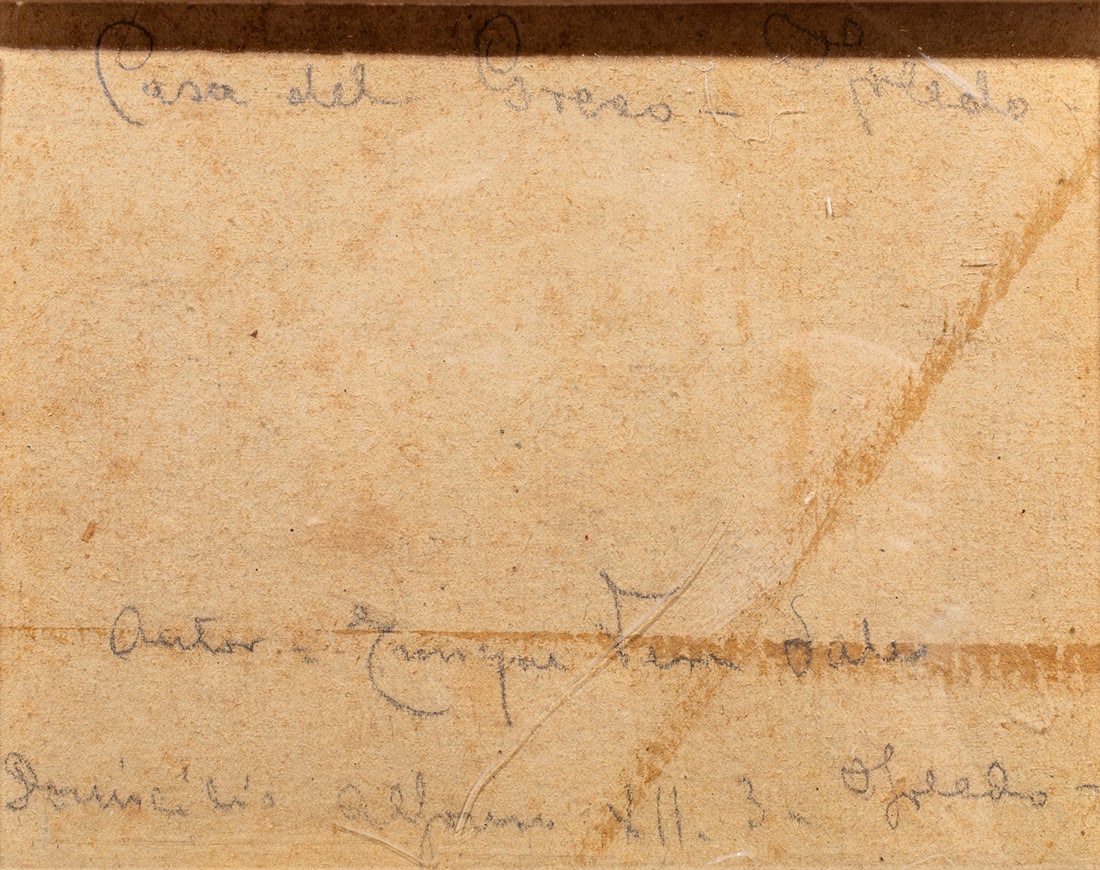 Casa del Greco - Toledo -
Autor - Enrique Vera Sales
Domicilio Alfonso XII. 3. Toledo -